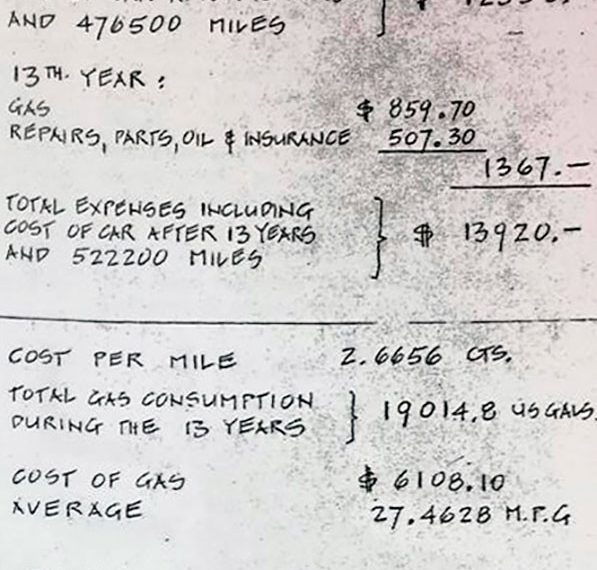 AND 476500 MILES
13TH. YEAR:
GAS $ 859.70
REPAIRS, PARTS, OIL & INSURANCE 507.30
1367.-
TOTAL EXPENSES INCLUDING
COST OF CAR AFTER 13 YEARS } $ 13920.-
AND 522200 MILES
COST PER MILE 2.6656 CTS.
TOTAL GAS CONSUMPTION
DURING THE 13 YEARS } 19014.8 US GALS.
COST OF GAS $ 6108.10
AVERAGE 27.4628 M.P.G